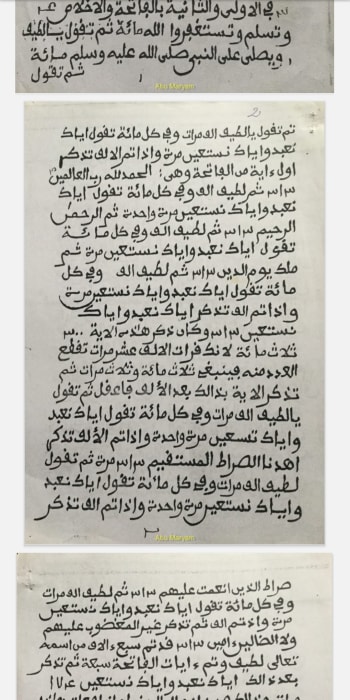 في الاولى والثانية بالفاتحة والاخلاص
وتسلم وتستغفر الله مائة ثم تقول يالطيف
ويصلى على النبي صلى الله عليه وسلم مائة
ثم تقول
Abu Maryam
2
ثم تقول يالطيف الف مرات وفي كل مائة تقول اياك
نعبد واياك نستعين مرة واذا تم الالف تذكر
اول ءاية من الفاتحة وهى: الحمد لله رب العالمين
ثم لطيف الف وفي كل مائة تقول اياك
نعبد واياك نستعين مرة واحدة ثم الرحمن
الرحيم ثم لطيف الف وفي كل مائة
تقول اياك نعبد واياك نستعين مرة ثم
ملك يوم الدين ثم لطيف الف وفي كل
مائة تقول اياك نعبد واياك نستعين مرة
واذا تم الف تذكر اياك نعبد واياك
نستعين وكان ذكر هذه الاية
ثلاث مائة لانك قرات الالف عشر مرات تقطع
العدد منه فينبغي ثلاث مائة وثلاث مرات ثم
تذكر الاية بذالك بعد الألف فاعقل ثم تقول
يالطيف الف مرات وفي كل مائة تقول اياك نعبد
واياك نستعين مرة واحدة واذا تم الألف تذكر
اهدنا الصراط المستقيم مرة ثم تقول
لطيف الف مرات وفي كل مائة تقول اياك نعبد
واياك نستعين مرة واحدة واذا تم الف تذكر
Abu Maryam
صراط الذين انعمت عليهم ثم لطيف الف مرات
وفي كل مائة تقول اياك نعبد واياك نستعين
مرة واذا تم الف ثم تذكر غير المغضوب عليهم
ولا الضالين ءامين قد تم سبع ءالاف من اسمه
تعالى لطيف وتم ءايات الفاتحة سبعة ثم تذكر
بعد ذالك اياك نعبد واياك نستعين